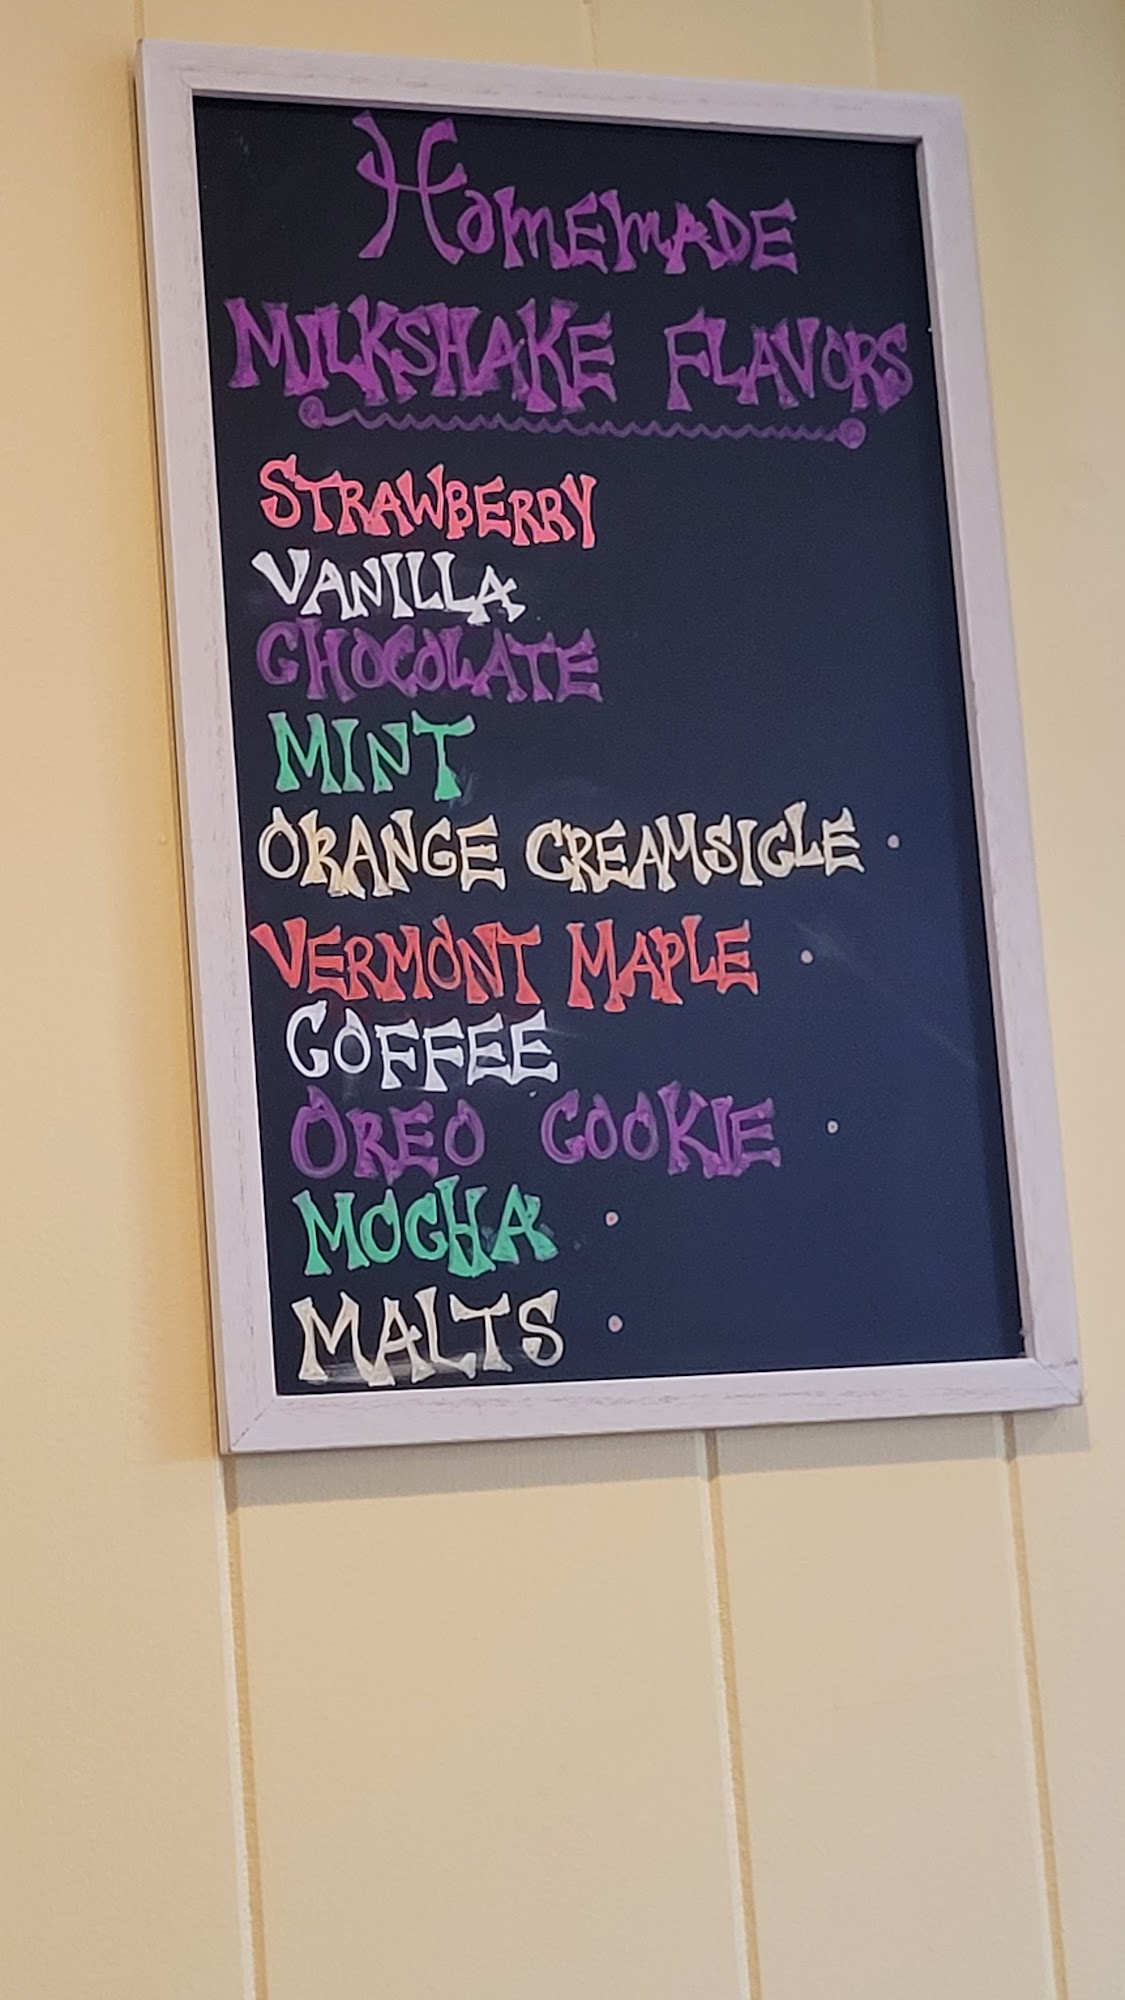 Homemade
MILKSHAKE FLAVORS
STRAWBERRY
VANILLA
CHOCOLATE
MINT
ORANGE CREAMSICLE •
VERMONT MAPLE •
COFFEE
OREO COOKIE •
MOCHA •
MALTS •